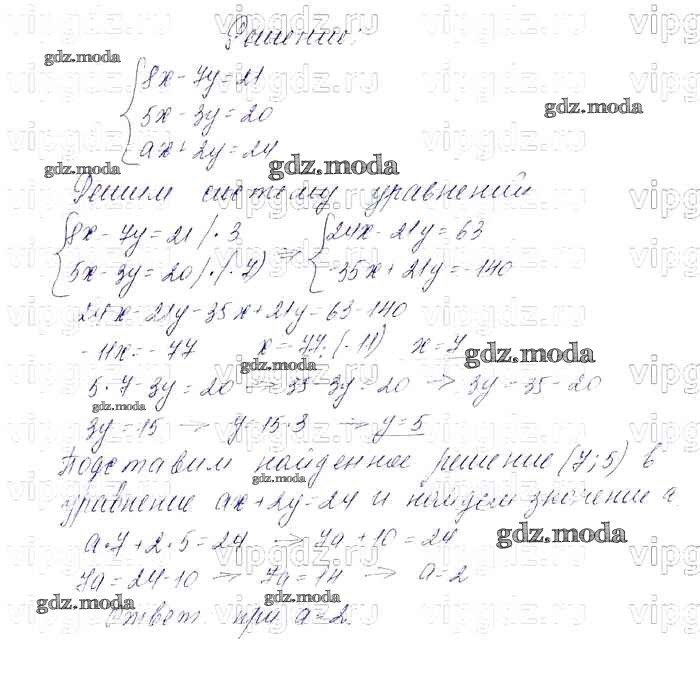 Решение:
8x - 7y = 21
5x - 3y = 20
ax + 2y = 24
Решим систему уравнений
8x - 7y = 21 | · 3
5x - 3y = 20 | · (-7)
=>
24x - 21y = 63
-35x + 21y = -140
24x - 21y - 35x + 21y = 63 - 140
-11x = -77 x = -77 : (-11) x = 7
5 · 7 - 3y = 20 => 35 - 3y = 20 -> 3y = 35 - 20
3y = 15 -> y = 15 : 3 -> y = 5
Подставим найденное решение (7; 5) в
уравнение ax + 2y = 24 и найдем значение a.
a · 7 + 2 · 5 = 24 -> 7a + 10 = 24
7a = 24 - 10 -> 7a = 14 -> a = 2
Ответ: при a = 2.
gdz.moda
gdz.moda
gdz.moda
gdz.moda
gdz.moda
gdz.moda
gdz.moda
gdz.moda
gdz.moda
gdz.moda
gdz.moda
vipgdz.ru